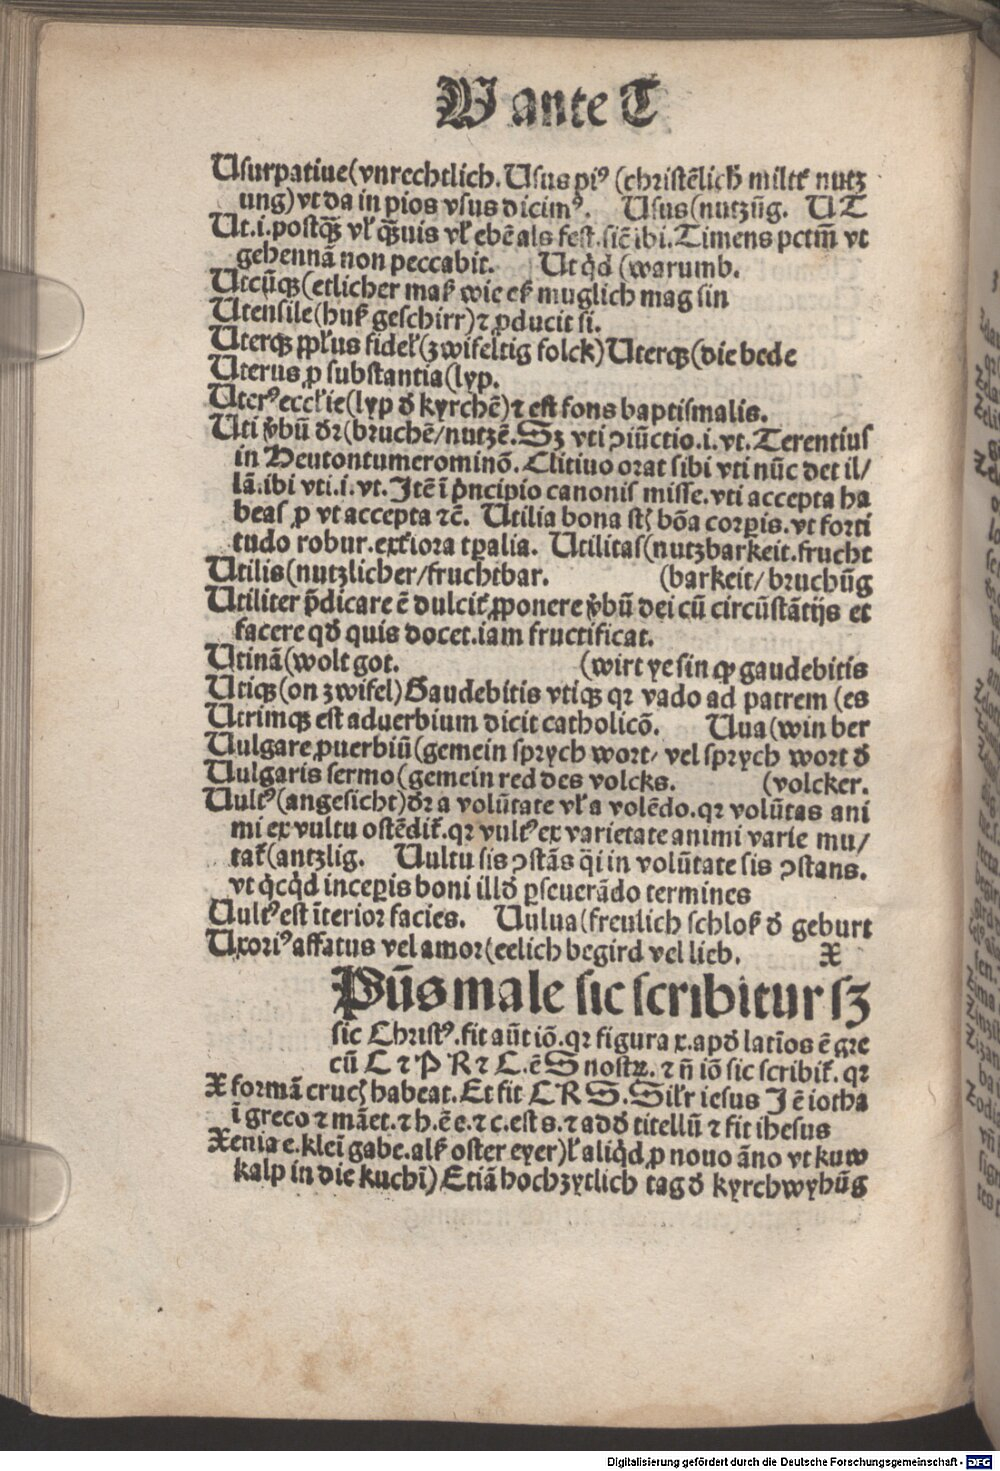 W ante T
Usurpatiue(vnrechtlich. Usus piꝰ (christẽlich milte nutz
ung)vt da in pios vsus dicimꝰ. Usus(nutzũg. UT
Ut.i.postꝙ̃ vł ꝙ̃uis vł ebẽ als fest.sic̃ ibi.Timens pctm̃ vt
gehennã non peccabit. Ut q̇d (warumb.
Utcũqꝫ(etlicher maß wie eß muglich mag sin
Utensile(huß geschirr)⁊ ꝓducit si.
Uterqꝫ pp̄lus fideł(zwifeltig folck)Uterqꝫ(die bede
Uterus ꝓ substantia(lyp.
Uterꝰ eccl̄ie(lyp d̕ kyrchẽ)⁊ est fons baptismalis.
Uti v̕bũ d̕ꝛ(bruchẽ/nutzẽ.Sꝫ vti ↄiũctio.i.vt.Terentius
in Heutontumerominõ.Clitiuo orat sibi vti nũc det il/
lã.ibi vti.i.vt.Itẽ ĩ pͥncipio canonis misse.vti accepta ha
beas ꝓ vt accepta ⁊c̃. Utilia bona st̃ bõa corꝑis.vt forti
tudo robur.ext̕iora tꝑalia. Utilitas(nutzbarkeit.frucht
Utilis(nutzlicher/fruchtbar. (barkeit/bruchũg
Utiliter p̃dicare ẽ dulcit̕ ꝓponere v̕bũ dei cũ circũstãtijs et
facere qd̕ quis docet.iam fructificat.
Utinã(wolt got. (wirt ye sin ꝙ gaudebitis
Utiqꝫ(on zwifel)Gaudebitis vtiqꝫ qꝛ vado ad patrem (es
Utrimqꝫ est aduerbium dicit catholicõ. Uua(win ber
Uulgare ꝓuerbiũ(gemein sprych wort/ vel sprych wort d̕
Uulgaris sermo(gemein red des volcks. (volcker.
Uultꝰ(angesicht)d̕ꝛ a volũtate vł a volẽdo.qꝛ volũtas ani
mi ex vultu ostẽdit̕.qꝛ vultꝰ ex varietate animi varie mu/
tat̕(antzlig. Uultu sis ↄstãs q̃i in volũtate sis ↄstans.
vt q̇cq̇d inceꝑis boni illd̕ ꝑseuerãdo termines
Uultꝰ est ĩterior facies. Uulua(freulich schloß d̕ geburt
Uxoriꝰ affatus vel amor(eelich begird vel lieb. X
Pũs male sic scribitur sꝫ
sic Christꝰ.fit aũt iõ.qꝛ figura x.apd̕ latĩos ẽ gre
cũ C ⁊ P R ⁊ C.ẽ S nostꝝ. ⁊ ñ iõ sic scribit̕.qꝛ
X formã cruc̃ habeat.Et fit CRS.Sił'r iesus I ẽ iotha
ĩ greco ⁊ mãet.⁊ h.ẽ e.⁊ c.est s.⁊ add̕ titellũ ⁊ fit ihesus
Xenia e.kleĩ gabe.alß oster eyer)ł aliq̇d ꝓ nouo ãno vt kuw
kalp in die kuchĩ)Etiã hochzytlich tag d̕ kyrchwyhũg
Digitalisierung gefördert durch die Deutsche Forschungsgemeinschaft - DFG